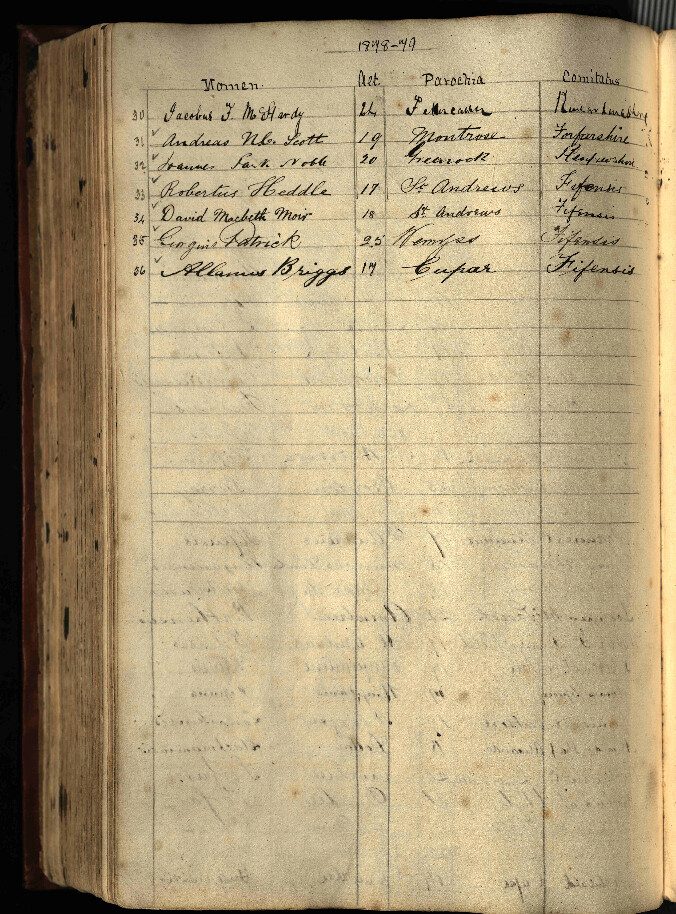 1878-79
Nomen. Aet Parochia Comitatus
30 Jacobus F. McHardy Fettercairn Kincardineshire
31 Andreas Scott 19 Montrose Forfarshire
32 Joannes Noble 20 Greenock Renfrewshire
33 Robertus Heddle 17 St Andrews Fifensis
34 David Macbeth Moir 18 St Andrews Fifensis
35 Georgius Patrick 25 Wemyss Fifensis
36 Allanus Briggs 17 Cupar Fifensis